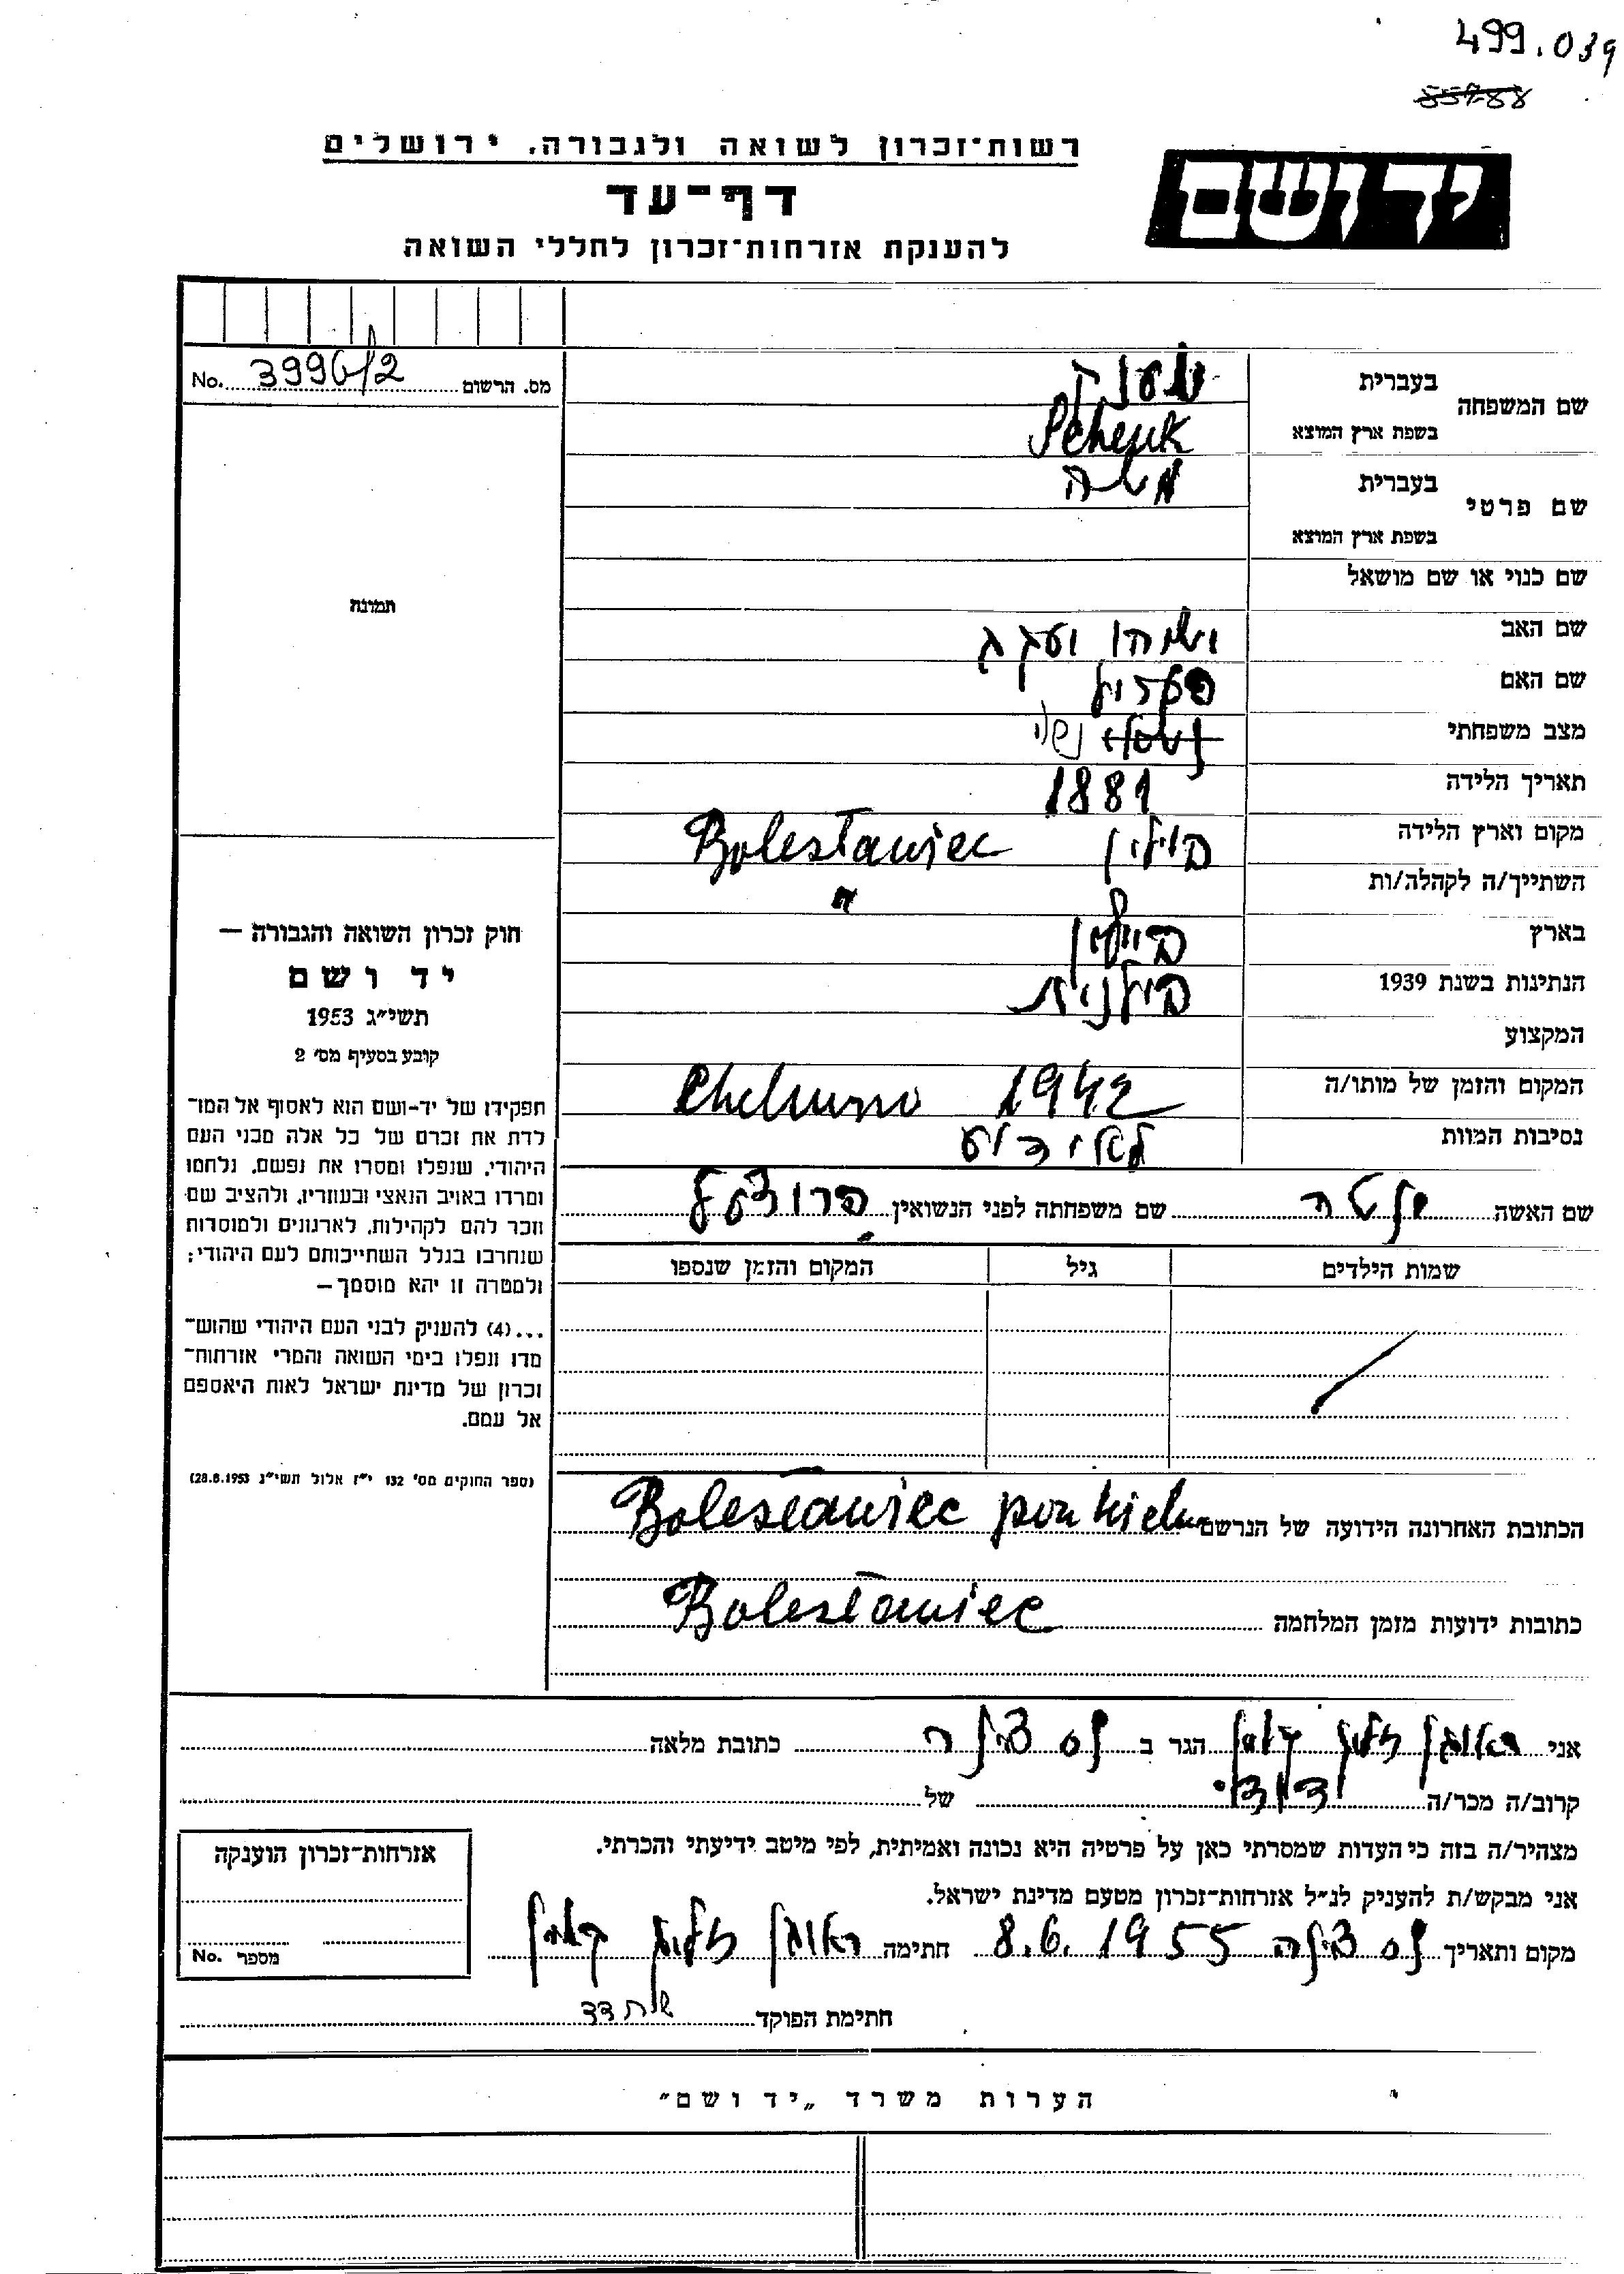 499.039
85788
רשות־זכרון לשואה ולגבורה. ירושלים
יד ושם
דף־עד
להענקת אזרחות־זכרון לחללי השואה
No. 3996/2 מס. הרשום
שם המשפחה בעברית שענק
בשפת ארץ המוצא Schenk
שם פרטי בעברית משה
בשפת ארץ המוצא
שם כנוי או שם מושאל
שם האב ישעיהו יעקב
שם האם
מצב משפחתי נשוי
תאריך הלידה 1881
מקום וארץ הלידה פולין Bolesławiec
השתייך/ה לקהלה/ות "
בארץ פולין
הנתינות בשנת 1939 פולנית
המקצוע
המקום והזמן של מותו/ה 1942 Chełmno
נסיבות המוות לא ידוע
שם האשה שם משפחתה לפני הנשואין
שמות הילדים גיל המקום והזמן שנספו
הכתובת האחרונה הידועה של הנרשם Bolesławiec
כתובות ידועות מזמן המלחמה Bolesławiec
תמונה
חוק זכרון השואה והגבורה —
יד ושם
תשי״ג 1953
קובע בסעיף מס׳ 2
תפקידו של יד-ושם הוא לאסוף אל המו־
לדת את זכרם של כל אלה מבני העם
היהודי, שנפלו ומסרו את נפשם, נלחמו
ומרדו באויב הנאצי ובעוזריו, ולהציב שם
וזכר להם לקהילות, לארגונים ולמוסדות
שנחרבו בגלל השתייכותם לעם היהודי;
ולמטרה זו יהא מוסמך—
...(4) להעניק לבני העם היהודי שהוש־
מדו ונפלו בימי השואה והמרי אזרחות־
זכרון של מדינת ישראל לאות היאספם
אל עמם.
(ספר החוקים מס׳ 132 י״ז אלול תשי״ג 28.8.1953)
אני הגר ב כתובת מלאה
קרוב/ה מכר/ה של
מצהיר/ה בזה כי העדות שמסרתי כאן על פרטיה היא נכונה ואמיתית, לפי מיטב ידיעתי והכרתי.
אני מבקש/ת להעניק לנ״ל אזרחות־זכרון מטעם מדינת ישראל.
מקום ותאריך 8.6.1955 חתימה
חתימת הפוקד
אזרחות־זכרון הוענקה
מספר No.
הערות משרד „יד ושם״